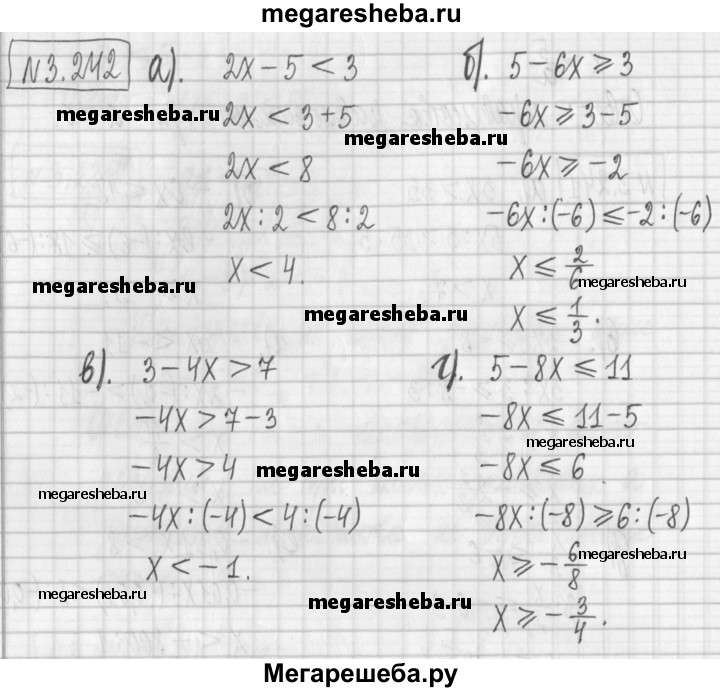 megaresheba.ru
N3.242 а). 2x - 5 < 3
2x < 3 + 5
2x < 8
2x : 2 < 8 : 2
x < 4.
б). 5 - 6x ⩾ 3
-6x ⩾ 3 - 5
-6x ⩾ -2
-6x : (-6) ⩽ -2 : (-6)
x ⩽ 2/6
x ⩽ 1/3.
в). 3 - 4x > 7
-4x > 7 - 3
-4x > 4
-4x : (-4) < 4 : (-4)
x < -1.
г). 5 - 8x ⩽ 11
-8x ⩽ 11 - 5
-8x ⩽ 6
-8x : (-8) ⩾ 6 : (-8)
x ⩾ -6/8
x ⩾ -3/4.
megaresheba.ru
megaresheba.ru
megaresheba.ru
megaresheba.ru
megaresheba.ru
megaresheba.ru
megaresheba.ru
megaresheba.ru
megaresheba.ru
megaresheba.ru
megaresheba.ru
megaresheba.ru
Мегарешеба.ру